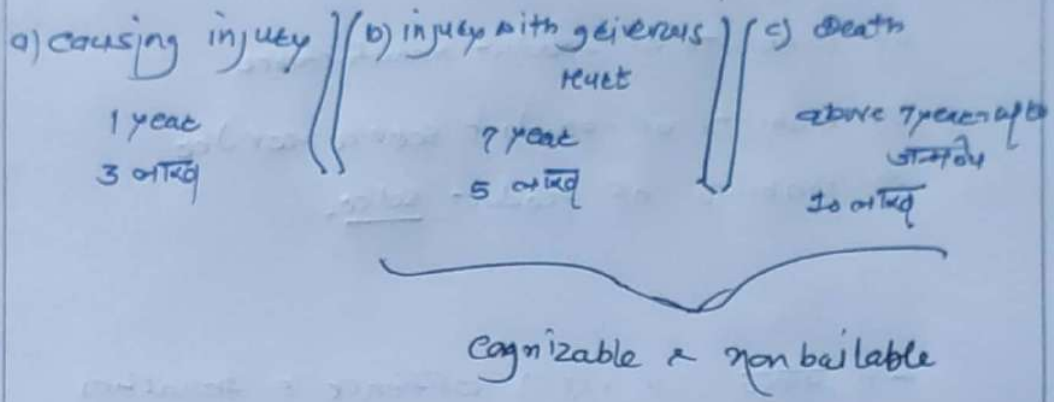 a) causing injury
1 year
3 लाख
b) injury with grivenous
hurt
7 year
5 लाख
c) Death
above 7 year upto
जन्मठेप
10 लाख
cognizable & non bailable